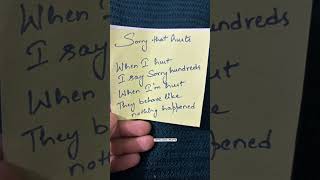 Sorry that hurts
When I hurt
I say Sorry hundreds
When I'm hurt
They behave like
nothing happened